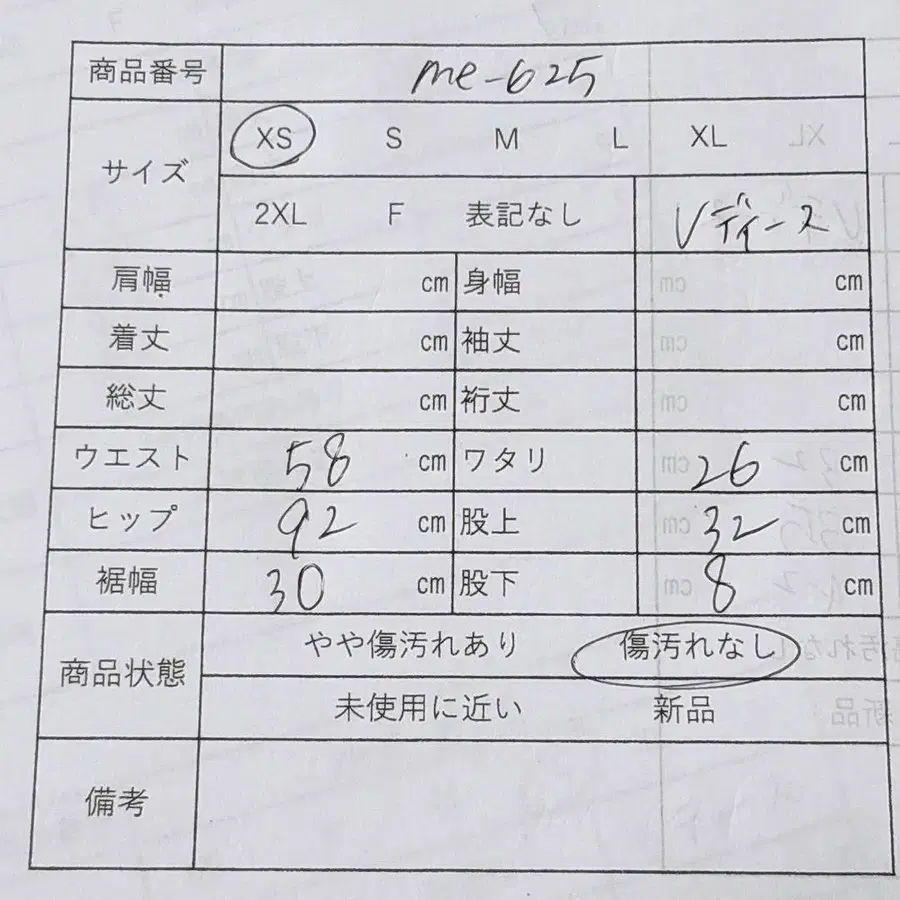 商品番号 me-625
サイズ XS S M L XL
2XL F 表記なし レディース
肩幅 cm 身幅 cm
着丈 cm 袖丈 cm
総丈 cm 裄丈 cm
ウエスト 58 cm ワタリ 26 cm
ヒップ 92 cm 股上 32 cm
裾幅 30 cm 股下 8 cm
商品状態 やや傷汚れあり 傷汚れなし
未使用に近い 新品
備考